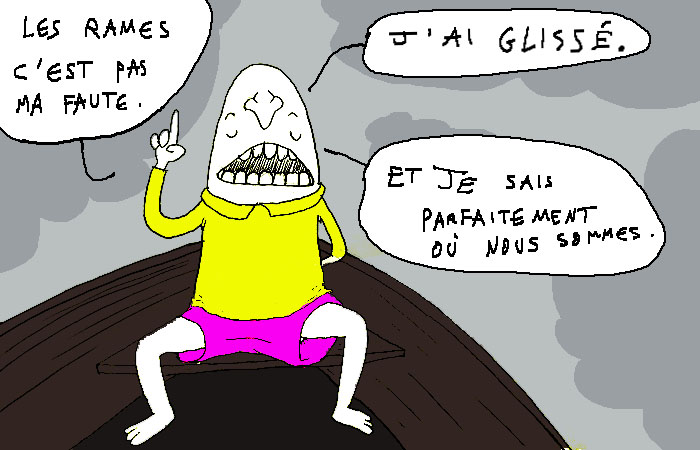 LES RAMES
C'EST PAS
MA FAUTE.
J'AI GLISSÉ.
ET JE SAIS
PARFAITEMENT
OÙ NOUS SOMMES.